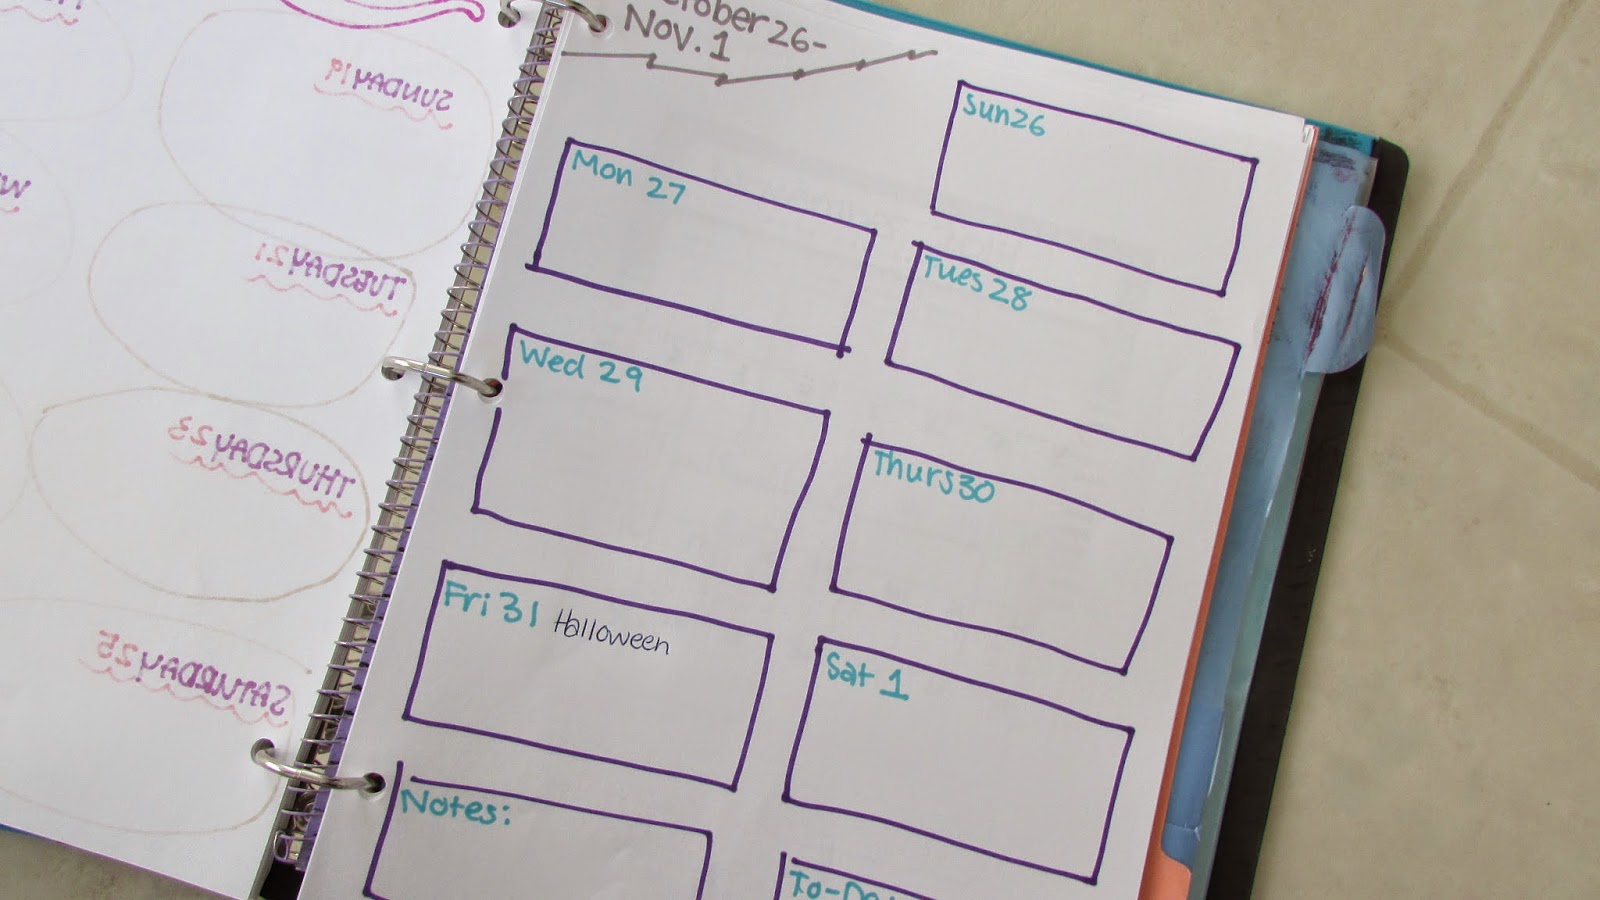 SUNDAY 19
TUESDAY 21
THURSDAY 23
SATURDAY 25
October 26-
Nov. 1
Sun 26
Mon 27
Tues 28
Wed 29
Thurs 30
Fri 31 Halloween
Sat 1
Notes:
To-Do